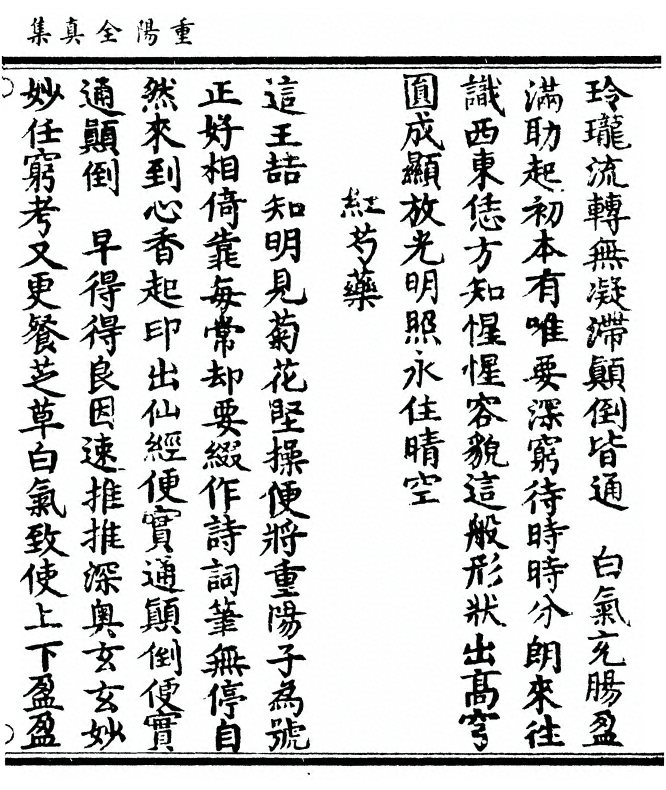 重陽全真集
玲瓏流轉無凝滯顛倒皆通　白氣充腸盈
滿助起初本有唯要深窮待時時分朗來往
識西東恁方知惺惺容貌這般形狀出高穹
圓成顯放光明照永住晴空
紅芍藥
這王嚞知明見菊花堅操便將重陽子為號
正好相倚靠每常却要綴作詩詞筆無停自
然來到心香起印出仙經便實通顛倒便實
通顛倒　早得得良因速推推深奧玄玄妙
妙任窮考又更餐芝草白氣致使上下盈盈